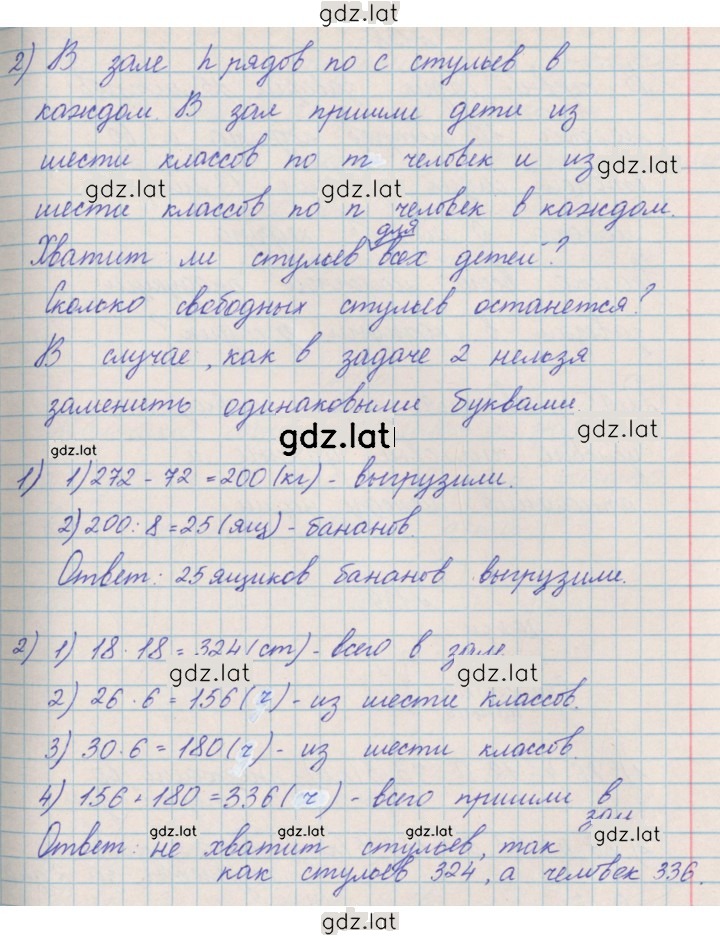 gdz.lat
2) В зале h рядов по с стульев в
каждом. В зал пришли дети из
шести классов по m человек и из
gdz.lat gdz.lat gdz.lat
шести классов по n человек в каждом.
для
Хватит ли стульев всех детей?
Сколько свободных стульев останется?
В случае, как в задаче 2 нельзя
заменить одинаковыми буквами.
gdz.lat gdz.lat gdz.lat
1) 1) 272 - 72 = 200 (кг) - выгрузили.
2) 200 : 8 = 25 (ящ) - бананов.
Ответ: 25 ящиков бананов выгрузили.
2) 1) 18 · 18 = 324 (ст) - всего в зале
gdz.lat gdz.lat
2) 26 · 6 = 156 (ч) - из шести классов.
3) 30 · 6 = 180 (ч) - из шести классов.
4) 156 + 180 = 336 (ч) - всего пришли в
зал
gdz.lat gdz.lat gdz.lat gdz.lat
Ответ: не хватит стульев, так
как стульев 324, а человек 336.
gdz.lat